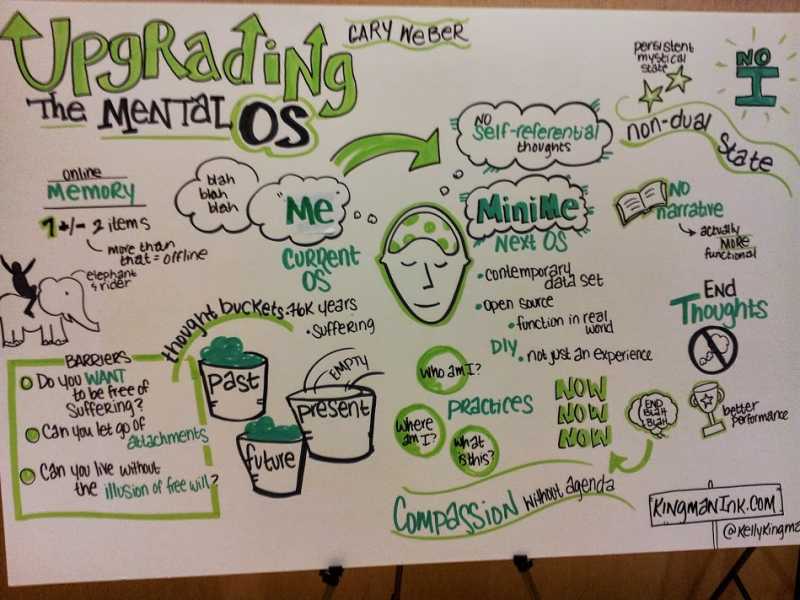 UPGRADING
GARY WEBER
THE MENTAL OS
persistent
mystical
state
NO
I
non-dual State
NO
Self-referential
thoughts
online
MEMORY
7 +/- 2 items
more than
that = offline
elephant
& rider
blah
blah
blah
"Me
CURRENT
OS
MiniMe
NEXT OS
• contemporary
data set
• open source
• function in real
world
DIY • not just an experience
NO
narrative
actually
MORE
functional
END
Thoughts
thought buckets: 76K years
• suffering
past
EMPTY
present
future
BARRIERS
Do you WANT
to be free of
suffering?
Can you let go of
attachments
Can you live without
the illusion of free will?
Who am I?
Where
am I?
What
is this?
PRACTICES
NOW
NOW
NOW
END
BLAH
BLAH
better
performance
COMPASSION without agenda
KINGMANINK.COM
@KellyKingma